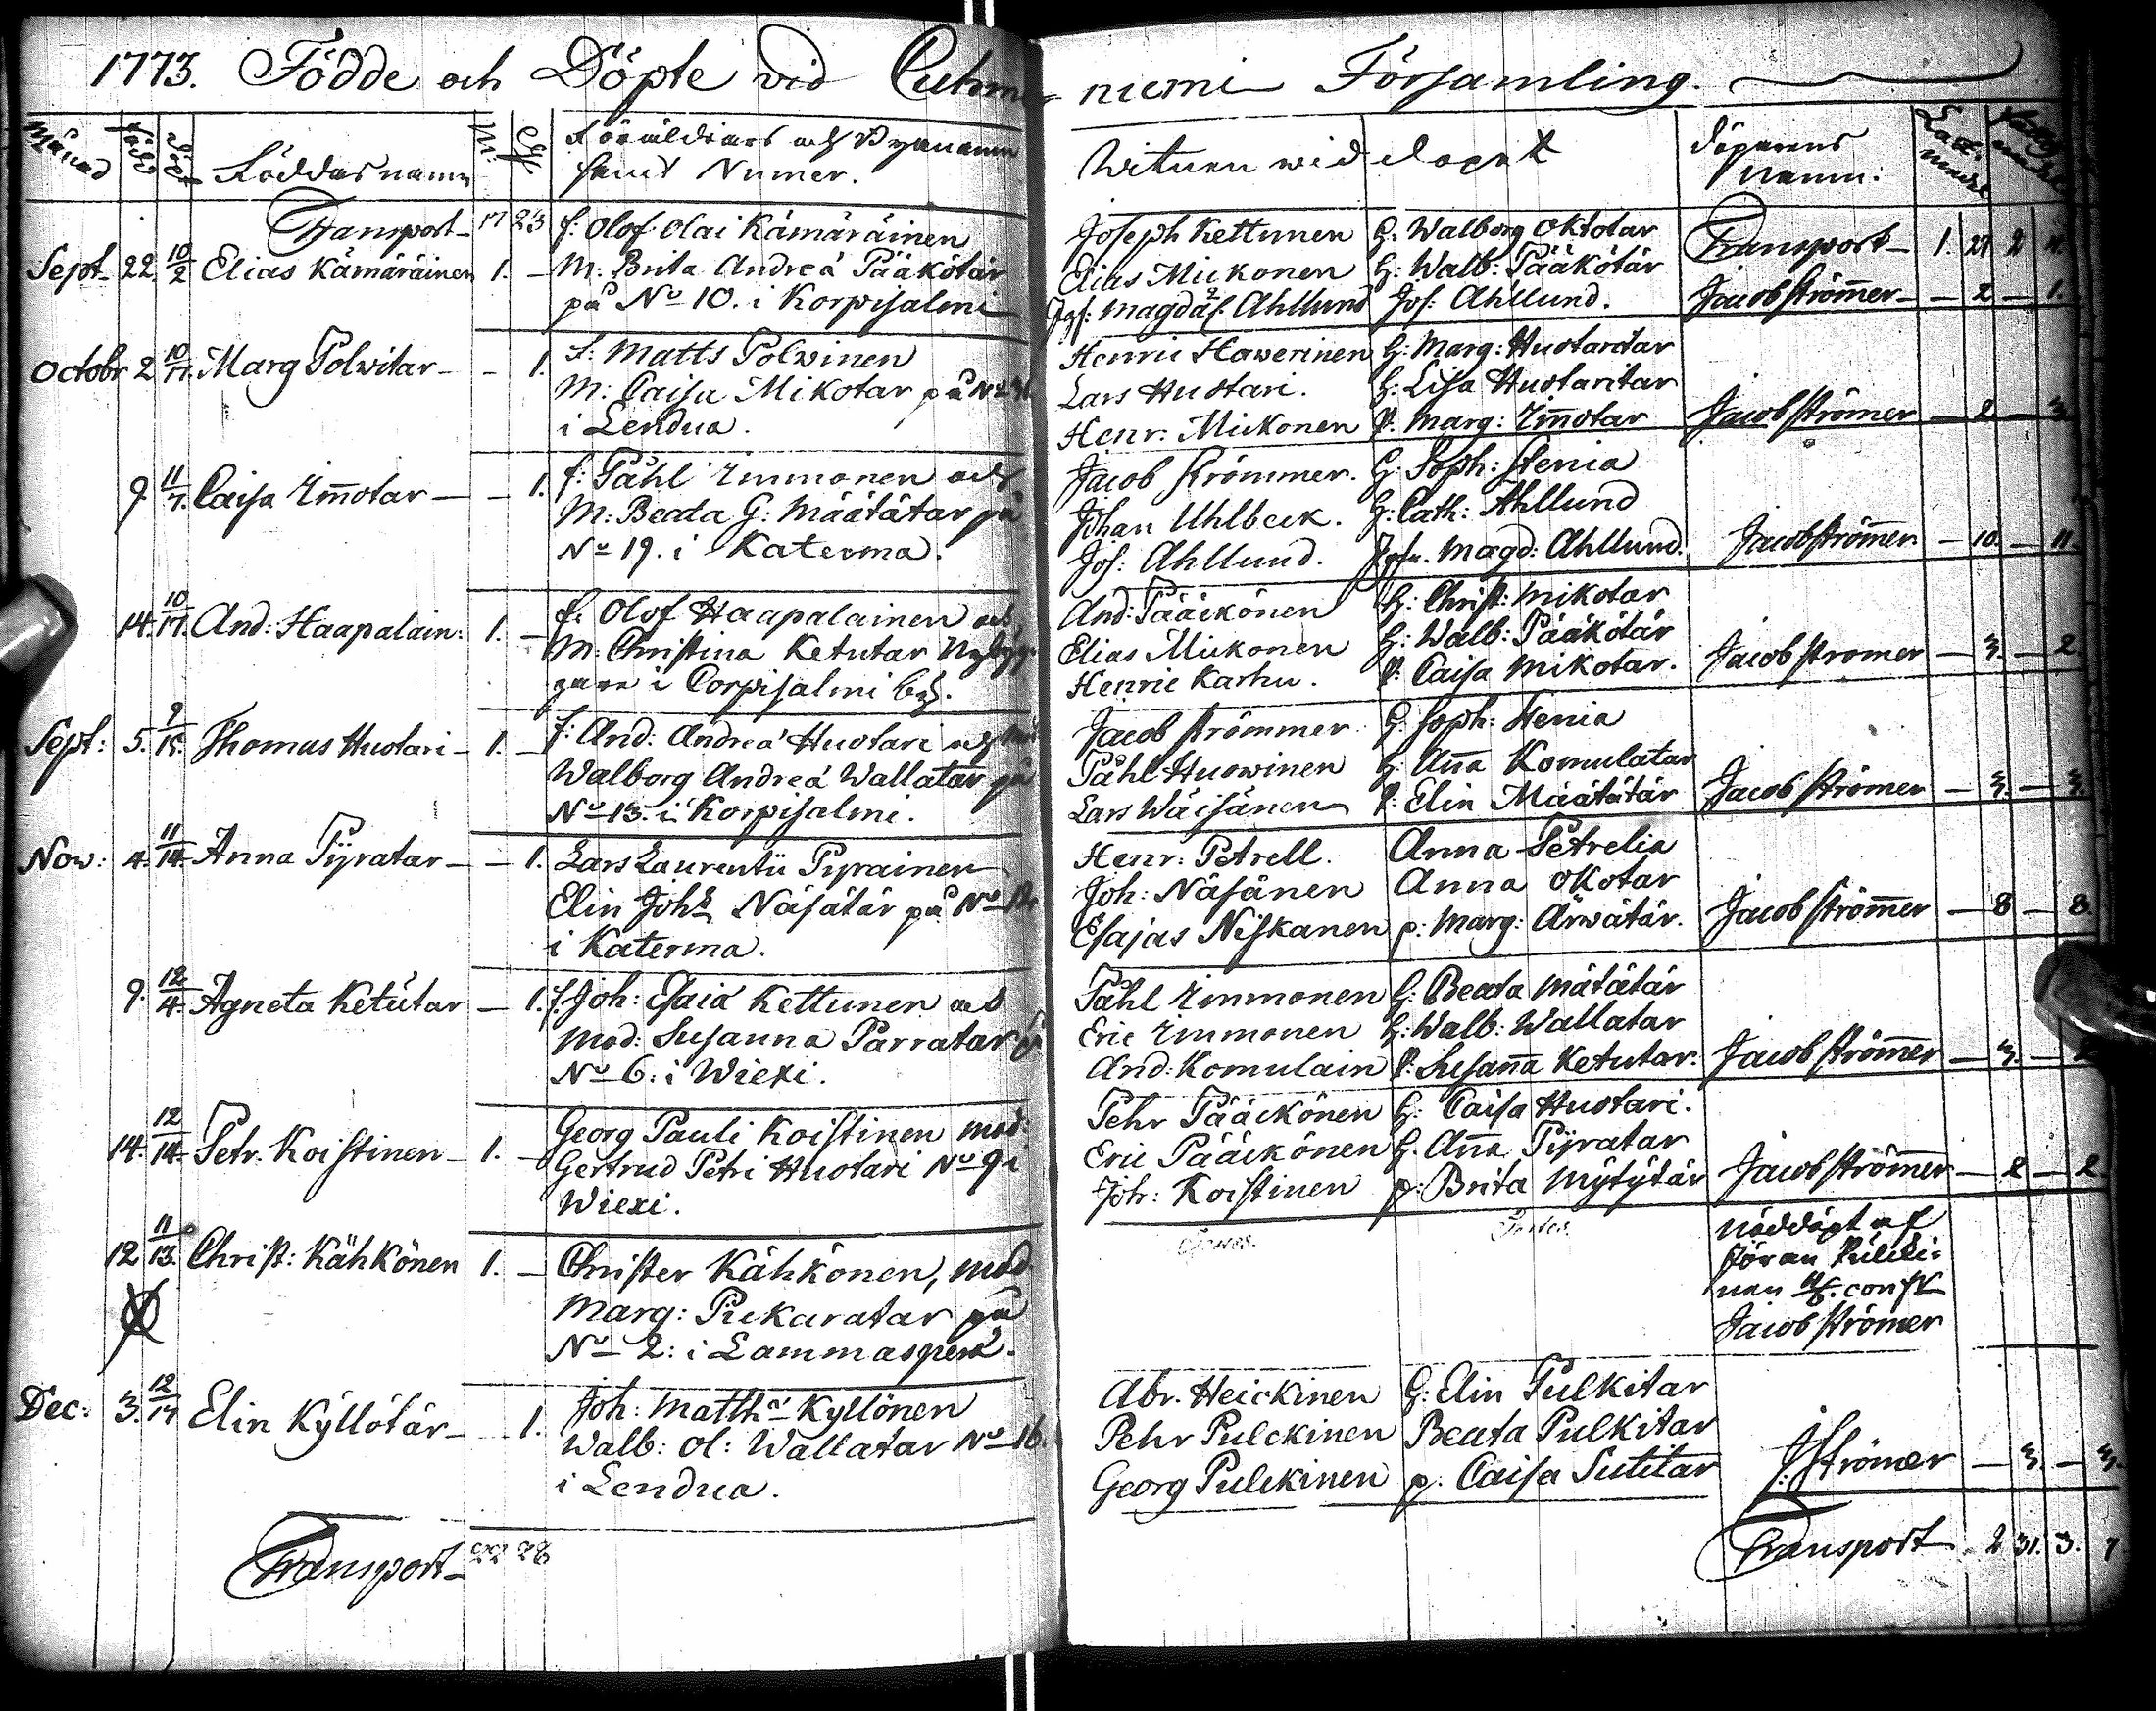 1773. Födde och Döpte vid Cuhmo= niemi Församling.
Månad Född Döpt Föddas namn M: Föräldrars och Byanamn
samt Numer.
Witnen wid dopet Döparens
Namn:
Transport 17 23 f: Olof Olai Kämäräinen
Sept. 22. 10/2 Elias Kämäräinen 1. — M: Brita Andreæ Pääkötär
på No 10. i Korpisalmi
Joseph Kettunen H: Walborg Oktotar Transport 1. 27 2 4.
Elias Mickonen H: Walb: Pääkötär
Jgf: Magda f. Ahllund Jos: Ahllund. Jacob Strömer — 2 — 1.
f: Matts Polwinen
Octobr 2 10/17. Marg Polwitar — 1. M: Caisa Mikotar på No
i Lendua.
Henric Hawerinen H: Marg: Huotaritar
Lars Huotari. H: Lisa Huotaritar
Henr: Mickonen P: Marg: Immotar Jacob Strömer — 2 — 3.
9. 11/7. Caisa Immotar — 1. f: Påhl Immonen och
M: Beata G: Määtätar på
No 19. i Katerma.
Jacob Strömmer. H: Soph: Stenia
Johan Uhlbeck. H: Cath: Ahllund
Jos: Ahllund. Jgfr. Magd: Ahllund. Jacob Strömer — 10. — 11.
14. 10/17. And: Haapalain: 1. — f: Olof Haapalainen och
M: Christina Ketutar Nybyg=
gare i Corpisalmi by.
And: Pääckönen H: Christ: Mikotar
Elias Mickonen H: Walb: Pääkötär
Henric Karhu. P: Caisa Mikotar. Jacob Strömer — 3. — 2.
Sept: 5. 9/15. Thomas Huotari 1. — f: And: Andreæ Huotari och
Walborg Andreæ Wallatar på
No 13. i Korpisalmi.
Jacob Strömmer H: Soph: Stenia
Påhl Huowinen H: Anna Komulatar
Lars Wäisänen P: Elin Määtätär Jacob Strömer — 3. — 3.
Now: 4. 11/14. Anna Pyratar — 1. Lars Laurentii Pyrainen
Elin Joh: Näsätär på No 12.
i Katerma.
Henr: Petrell. Anna Petrelia
Joh: Näsänen Anna Okotar
Esajas Niskanen p: Marg: Ärwätär. Jacob Strömer — 8 — 8.
9. 12/4. Agneta Ketutar — 1. f: Joh: Esaiæ Kettunen och
Mod: Susanna Parratar
No 6: i Wiexi.
Påhl Immonen H: Beata Mätätär
Eric Immonen H: Walb: Wallatar
And: Komulain P: Susanna Ketutar. Jacob Strömer — 3. — 2
14. 12/14. Petr. Koistinen 1. — Georg Pauli Koistinen mod:
Gertrud Petri Huotari No 9 i
Wiexi.
Pehr Pääckönen H: Caisa Huotari.
Eric Pääckönen H. Anna Pyratar
Joh: Koistinen p: Brita Mytytär Jacob Strömer — 2 — 2
12 11/13. Christ: Kähkönen 1. — Christer Kähkönen, mod
Marg: Pickaratar på
No 2: i Lammasperä.
Testes. Testes. nöddöpt af
Jöran Pulcki=
nen conf.
Jacob Strömer
Dec: 3. 12/14 Elin Kyllötär — 1. Joh: Matthæi Kyllönen
Walb: Ol: Wallatar No 16.
i Lendua.
Abr. Heickinen H: Elin Pulkitar
Pehr Pulckinen Beata Pulkitar
Georg Pulckinen p. Caisa Sutitar J: Strömer — 3. — 3.
Transport 22 28
Transport 2 31. 3. 7